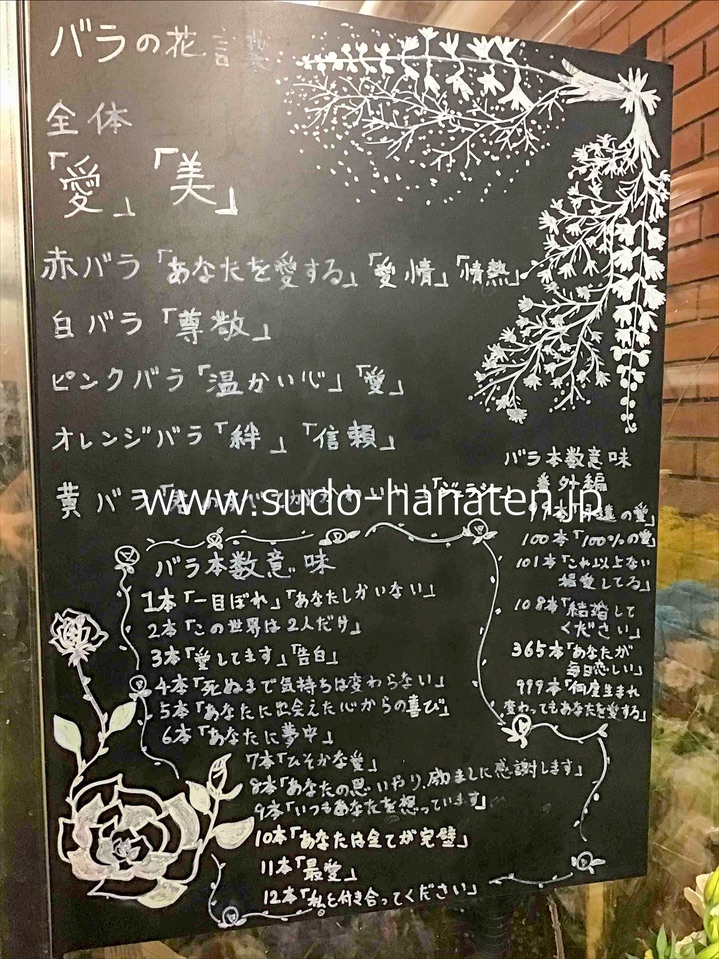 バラの花言葉
全体
「愛」「美」
赤バラ「あなたを愛する」「愛情」「情熱」
白バラ「尊敬」
ピンクバラ「温かい心」「愛」
オレンジバラ「絆」「信頼」
黄バラ
www.sudo-hanaten.jp
バラ本数意味
1本「一目ぼれ」「あなたしかいない」
2本「この世界は2人だけ」
3本「愛してます」「告白」
4本「死ぬまで気持ちは変わらない」
5本「あなたに出会えた心からの喜び」
6本「あなたに夢中」
7本「ひそかな愛」
8本「あなたの思いやり、励ましに感謝します」
9本「いつもあなたを想っています」
10本「あなたは全てが完璧」
11本「最愛」
12本「私と付き合ってください」
バラ本数意味
番外編
99本「永遠の愛」
100本「100%の愛」
101本「これ以上ない
程愛してる」
108本「結婚して
ください」
365本「あなたが
毎日恋しい」
999本「何度生まれ
変わってもあなたを愛する」